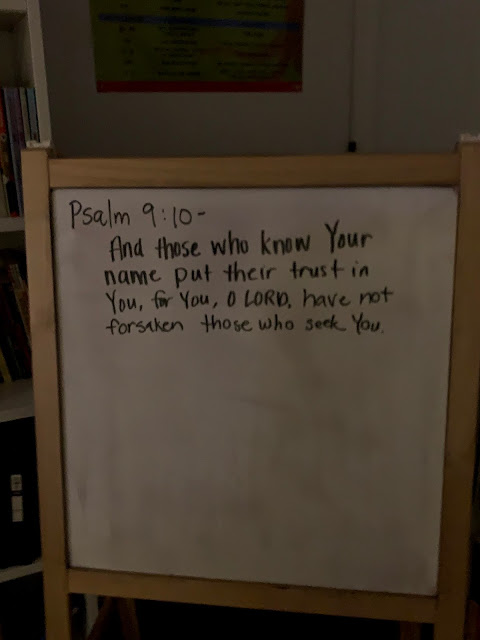 Psalm 9:10-
And those who know Your
name put their trust in
You, for You, O LORD, have not
forsaken those who seek You.